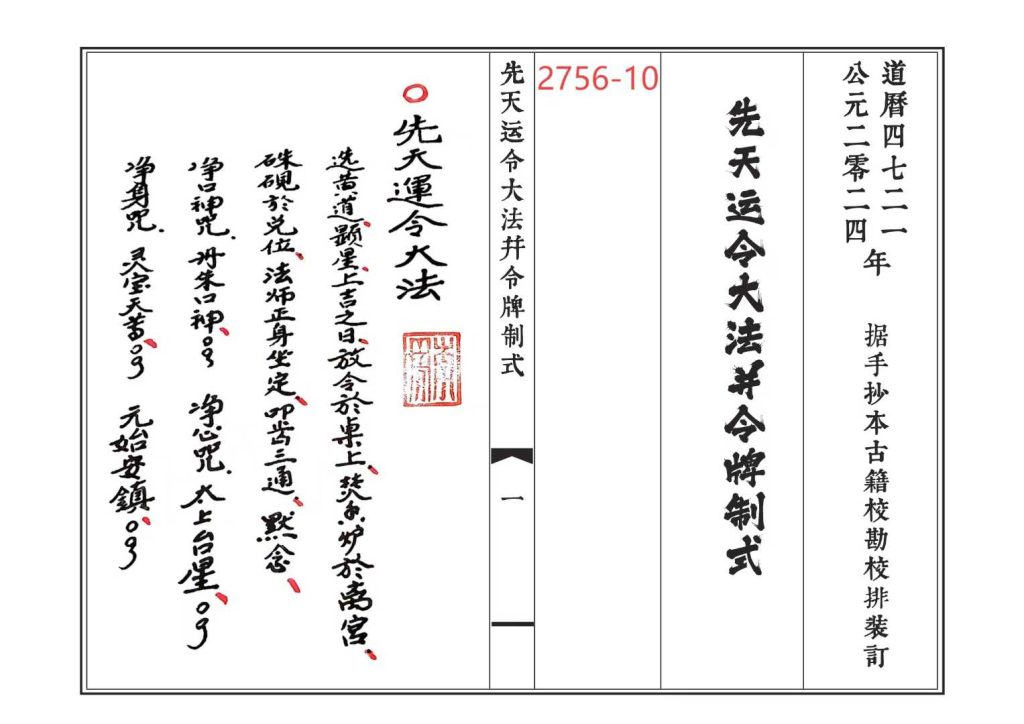 道曆四七二一
公元二零二四
年
据手抄本古籍校勘校排裝訂
先天运令大法并令牌制式
2756-10
先天运令大法并令牌制式
一
先天運令大法
选黄道顕星上吉之日放令於桌上焚香炉於离宫
硃硯於兑位法师正身坐定叩齿三通默念
净口神咒丹朱口神 净心咒太上台星
净身咒灵宝天尊 元始安鎮